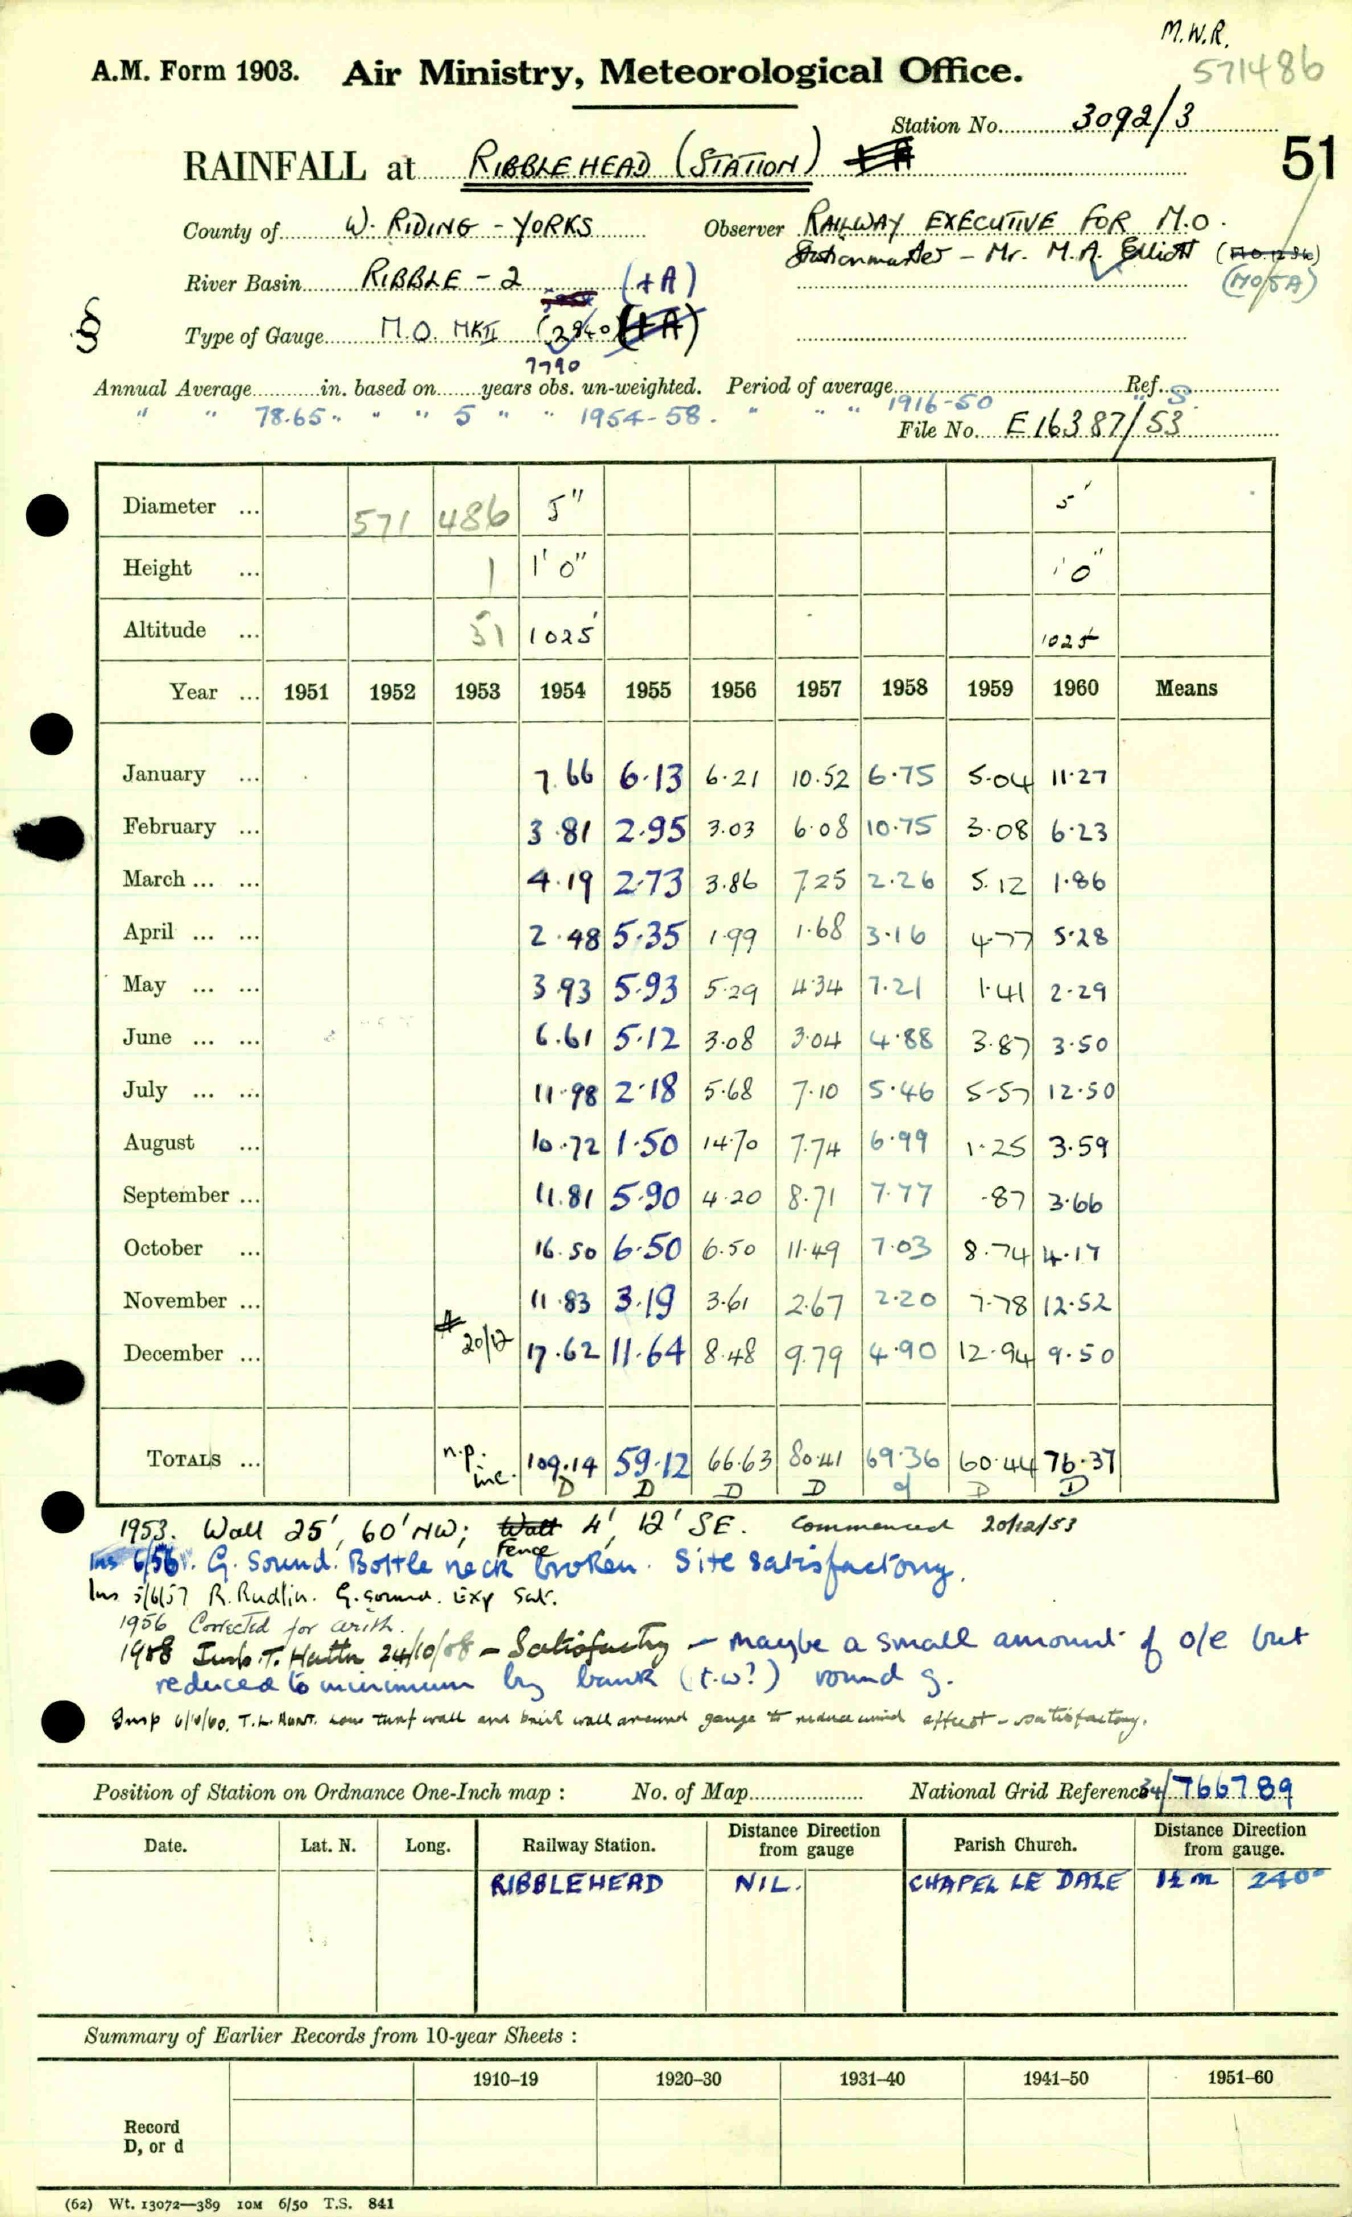 M.W.R.
571486
A.M. Form 1903. Air Ministry, Meteorological Office.
Station No. 3092/3
51
RAINFALL at RIBBLEHEAD (STATION)
County of W. RIDING - YORKS Observer RAILWAY EXECUTIVE FOR M.O.
Stationmaster - Mr. M.A. Elliott
(MO5A)
River Basin RIBBLE - 2 (+A)
§ Type of Gauge M.O. MKII (2840) (+A)
7790
Annual Average in. based on years obs. un-weighted. Period of average Ref.
" " 78.65 " " " 5 " " 1954-58. " " " 1916-50 " S.
File No. E16387/53
Diameter ... 571 486 5" 5'
Height ... 1 1' 0" 1' 0"
Altitude ... 51 1025' 1025
Year ... 1951 1952 1953 1954 1955 1956 1957 1958 1959 1960 Means
January ... 7.66 6.13 6.21 10.52 6.75 5.04 11.27
February ... 3.81 2.95 3.03 6.08 10.75 3.08 6.23
March ... ... 4.19 2.73 3.86 7.25 2.26 5.12 1.86
April ... ... 2.48 5.35 1.99 1.68 3.16 4.77 5.28
May ... ... 3.93 5.93 5.29 4.34 7.21 1.41 2.29
June ... ... 6.61 5.12 3.08 3.04 4.88 3.87 3.50
July ... ... 11.98 2.18 5.68 7.10 5.46 5.57 12.50
August ... 10.72 1.50 14.70 7.74 6.99 1.25 3.59
September ... 11.81 5.90 4.20 8.71 7.77 .87 3.66
October ... 16.50 6.50 6.50 11.49 7.03 8.74 4.17
November ... 11.83 3.19 3.61 2.67 2.20 7.78 12.52
December ... 20/12 17.62 11.64 8.48 9.79 4.90 12.94 9.50
TOTALS ... n.p. inc. 109.14 59.12 66.63 80.41 69.36 60.44 76.37
D D D D d D D
1953. Wall 25', 60' NW; Wall Fence 4', 12' SE. Commenced 20/12/53
Ins 6/56. G. Sound. Bottle neck broken. Site satisfactory.
Ins 5/6/57 R. Rudlin. G. sound. Exp Sat.
1956 Corrected for arith.
1958 Insp. T. 24/10/58 - Satisfactory - maybe a small amount of o/e but
reduced to minimum by bank (t.w?) round g.
Insp 6/10/60. T.L. HUNT. Low turf wall and brick wall around gauge to reduce wind effect - satisfactory.
Position of Station on Ordnance One-Inch map : No. of Map National Grid Reference 34/766789
Date. Lat. N. Long. Railway Station. Distance Direction from gauge Parish Church. Distance Direction from gauge.
RIBBLEHEAD NIL. CHAPEL LE DALE 1½ m 240°
Summary of Earlier Records from 10-year Sheets :
1910-19 1920-30 1931-40 1941-50 1951-60
Record
D, or d
(62) Wt. 13072—389 10M 6/50 T.S. 841